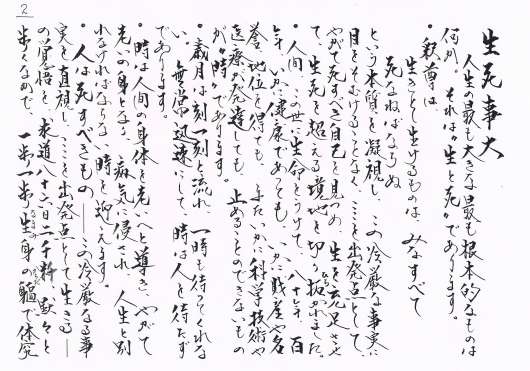 2
生死事大
人生の最も大きな最も根本的なものは
何か。それは“生と死”であります。
• 釈尊は、
生きとし生けるものは みなすべて
死なねばならぬ
という本質を凝視し、この冷厳な事実に
目をそむけることなく、ここを出発点として、
やがて死すべき自己を見つめ、生を充足させ
て、生死を超える境地を切り拓かれました。
• 人間、この世に生命をうけて、八十年、百
年、いかに健康であっても、いかに財産や名
誉、地位を得ても、またいかに科学技術や
医療が発達しても、止めることのできないもの
が“時”であります。
• 歳月は刻一刻と流れ、一時も待ってくれな
い、無常迅速にして、時は人を待たず
であります。
• 時は人間の身体を老いへと導き、やがて
老いの身となり、病気に侵され、人生と別
れなければならない時を迎えます。
• 人は死すべきもの——この冷厳なる事
実を直視し、ここを出発点として生きる——
の覚悟を、求道八十八日二千粁、黙々と
歩くなかで、一歩一歩、生身の軀で体究